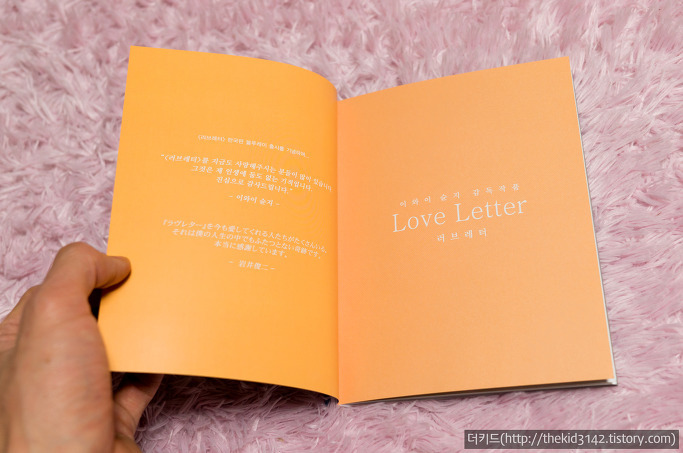 <러브레터> 한국판 블루레이 출시를 기념하며...
"<러브레터>를 지금도 사랑해주시는 분들이 많이 있습니다.
그것은 제 인생에 둘도 없는 기적입니다.
진심으로 감사드립니다."
- 이와이 슌지 -
『ラヴレター』を今も愛してくれる人たちがたくさんいる。
それは僕の人生の中でもふたつとない奇跡です。
本当に感謝しています。
- 岩井俊二 -
이와이 슌지 감독작품
Love Letter
러브레터
더키드(http://thekid3142.tistory.com)